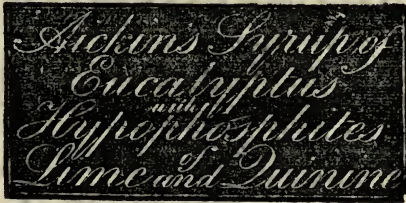 Aickin's Syrup of
Eucalyptus
with
Hypophosphites
of
Lime and Quinine